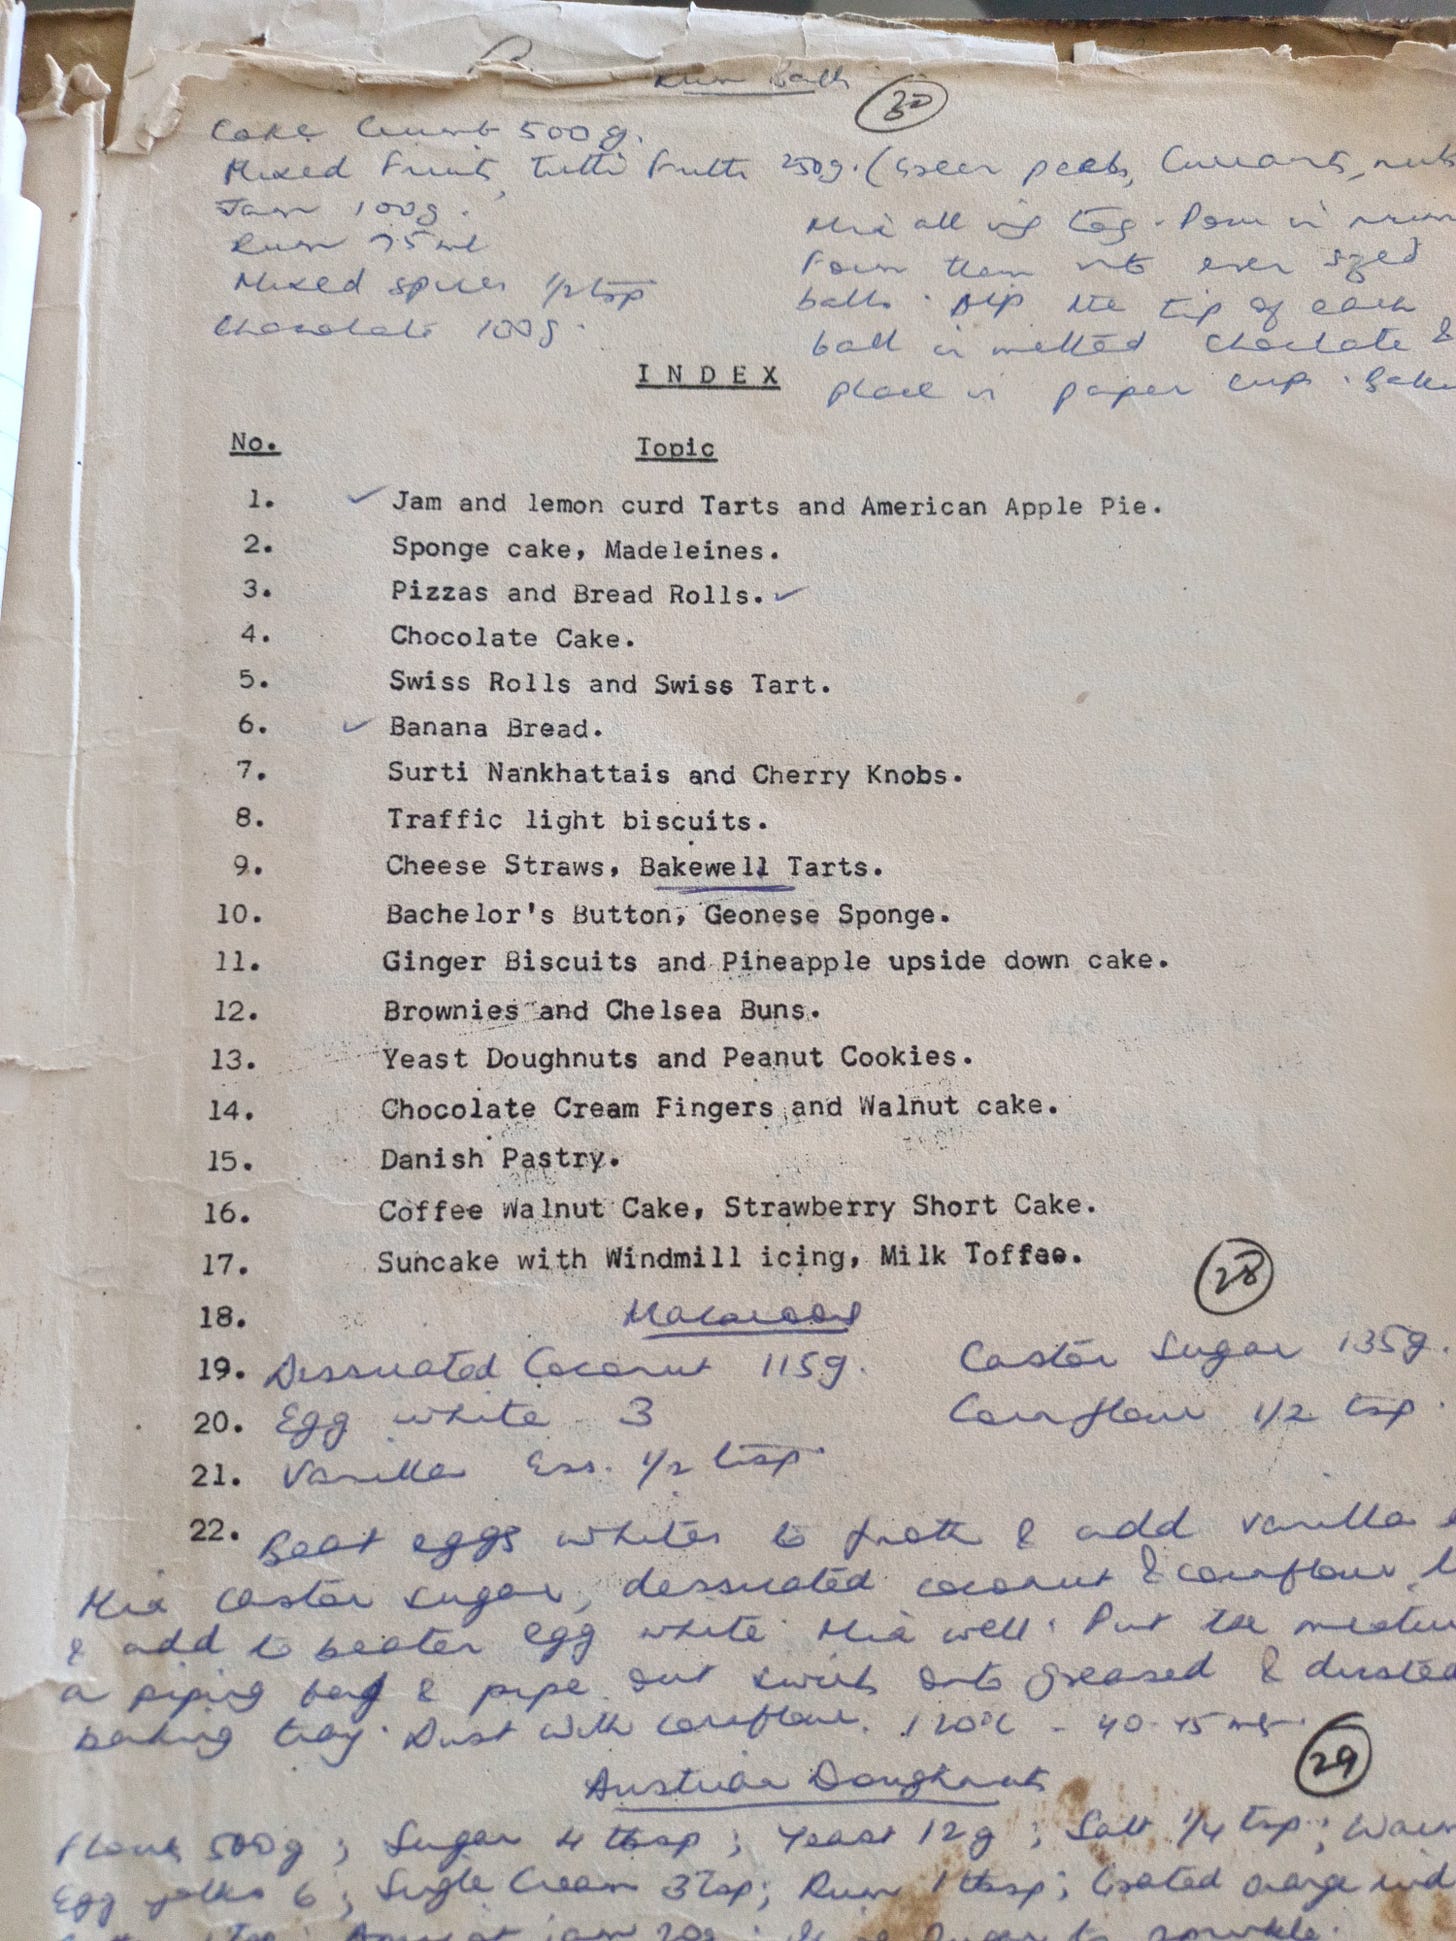 Rum Balls
30
Cake Crumb 500g.
Mixed Fruit, Tutti Frutti 250g. (Green peels, Currant, nuts
Jam 100g.
Rum 75ml
Mixed spices 1/2 tsp
Chocolate 100g.
Mix all ing tog. Pour in rum
Form them into even sized
balls. Dip the tip of each
ball in melted choclate &
place in paper cup.
INDEX
No. Topic
1. ✓ Jam and lemon curd Tarts and American Apple Pie.
2. Sponge cake, Madeleines.
3. Pizzas and Bread Rolls. ✓
4. Chocolate Cake.
5. Swiss Rolls and Swiss Tart.
6. ✓ Banana Bread.
7. Surti Nankhattais and Cherry Knobs.
8. Traffic light biscuits.
9. Cheese Straws, Bakewell Tarts.
10. Bachelor's Button, Geonese Sponge.
11. Ginger Biscuits and Pineapple upside down cake.
12. Brownies and Chelsea Buns.
13. Yeast Doughnuts and Peanut Cookies.
14. Chocolate Cream Fingers and Walnut cake.
15. Danish Pastry.
16. Coffee Walnut Cake, Strawberry Short Cake.
17. Suncake with Windmill icing, Milk Toffee.
28
18. Macaroons
19. Dessicated Coconut 115g. Castor Sugar 135g.
20. Egg white 3 Cornflour 1/2 tsp.
21. Vanilla Ess. 1/2 tsp.
22. Beat eggs whites to froth & add vanilla
Mix castor sugar, dessicated coconut & cornflour
& add to beaten egg white. Mix well. Put the
a piping bag & pipe out swirls onto greased & dusted
baking tray. Dust with cornflour. 120°C - 40-45
Austrian Doughnuts
29
Flour 500g; Sugar 4 tbsp; Yeast 12g; Salt 1/4 tsp;
Egg yolks 6; Single Cream 3 Tsp; Rum 1 tbsp; Grated orange rind
Apricot jam 20g; Icing Sugar to sprinkle.